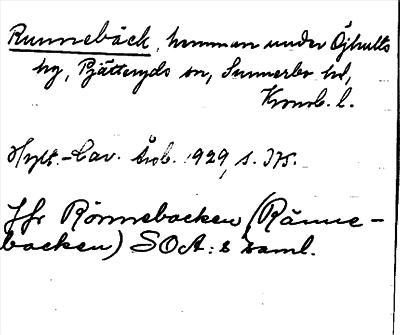 Runnebäck, hemman under Öjhults
hg, Pjätteryds sn, Sunnerbo hd,
Kronob. l.
Hylt.-Cav. Årsb. 1929, s. 375.
Jfr Rönnebacken (Ränne-
backen) SOA:s saml.